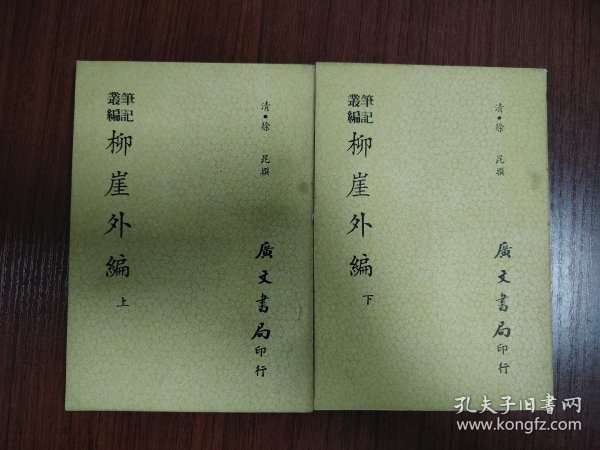 筆記叢編
柳崖外編 上
清•徐 昆撰
廣文書局印行
筆記叢編
柳崖外編 下
清•徐 昆撰
廣文書局印行
孔夫子旧书网
www.kongfz.com